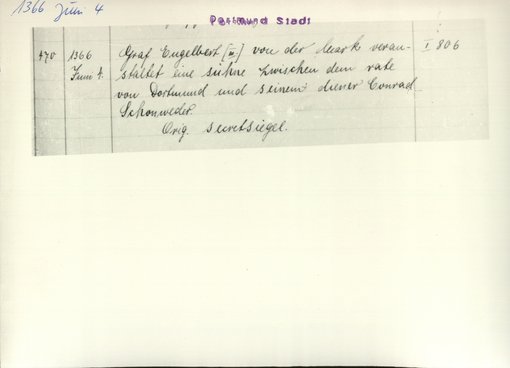 1366 Juni 4
Dortmund Stadt
470 1366 Graf Engelbert [III] von der Mark veran- I 806
Juni 4. staltet eine sühne zwischen dem rate
von Dortmund und seinem diener Conrad
Schonweder.
Orig. secretsiegel.